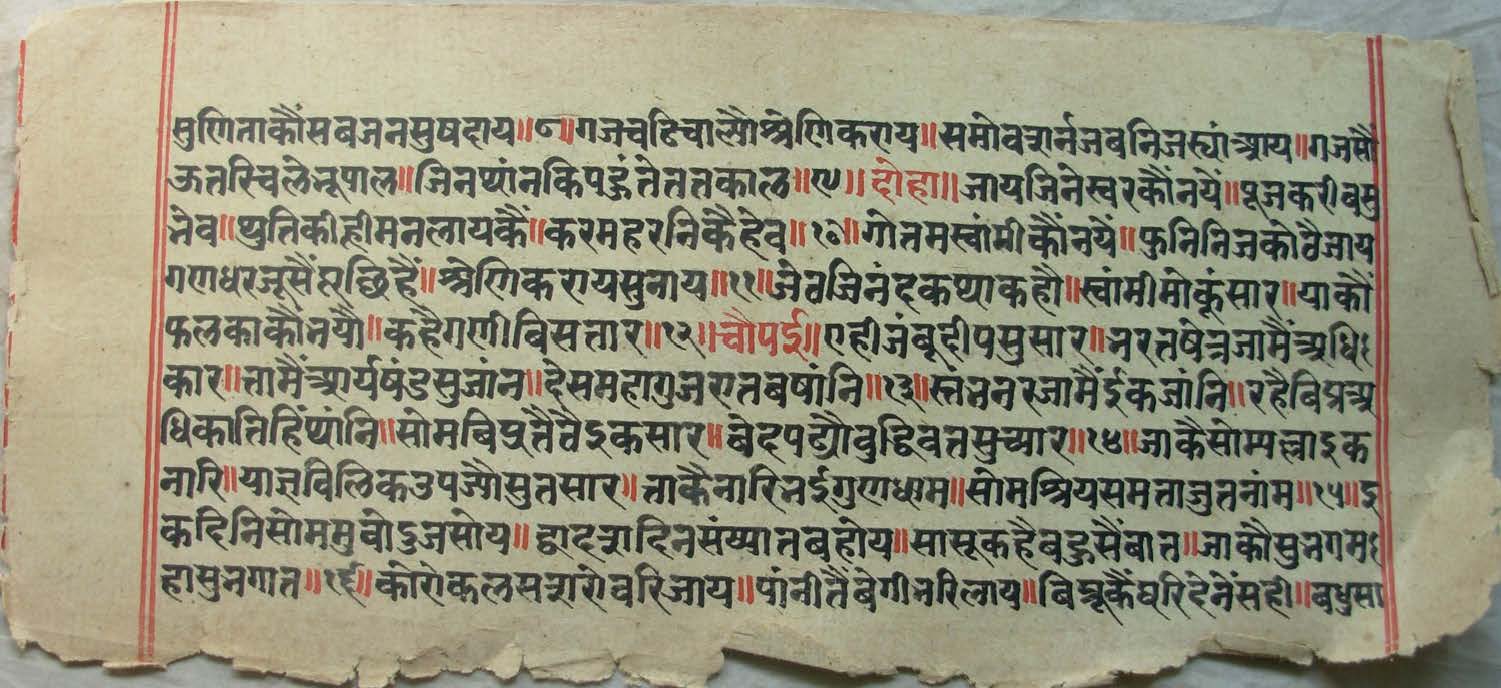 सुणिताकौंसबजनसुषदाय॥८॥गजचढिचाल्यौश्रेणिकराय॥समोवशर्नजबनिजस्यांआय॥गजसौं
ऊतरिचलेभूपाल॥जिनथांनकिपहुंतेततकाल॥९॥दोहा॥जायजिनेस्वरकौंनयें॥पूजकरीवसु
भेव॥थुतिकीन्हीमनलायकैं॥करमहरनिकैहेव॥१०॥गोतमस्वांमीकौंनयें॥फुनिनिजकोठैजाय
गणधरजूसैंपूछिहैं॥श्रेणिकरायसुभाय॥११॥जेठजिनंदकथाकहौ॥स्वांमीमोकूंसार॥याकौं
फलकाकौंभयौ॥कहैगणीबिसतार॥१२॥चौपई॥एहीजंबूदीपसुसार॥भरतषेत्रजामैंअधि
कार॥तामैंआर्यषंडसुजांन॥देसमहागुजरातबषांनि॥१३॥स्तंभनरजामैंईकजांनि॥रहैबिप्रअ
धिकातिहिंथांनि॥सोमबिप्रतैठैइकसार॥बेदपढ्यौबुद्धिवतसुच्यार॥१४॥जाकैसोम्यल्लाइक
नारि॥याज्ञवलिकउपज्यौसुतसार॥ताकैनारिभईगुणधाम॥सोमश्रियसमताजुतनांम॥१५॥इ
कदिनिसोममुवोदुजसोय॥द्वादशादिनसंख्यातबहोय॥सासूकहैबहुसैंबात॥जाकौसुभगम
हासुभगात॥१६॥कोरोकलससरोवरिजाय॥पांनीतैबेगीभरिलाय॥बिप्रूकैंघरिदेनेंसही॥बधुसा